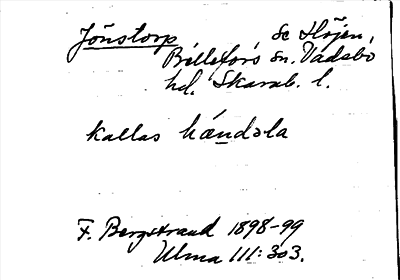 Jönstorp se Höjen,
Billefors sn. Vadsbo
hd. Skarab. l.
kallas hándəla
F. Bergstrand 1898-99
Ulma 111:303.